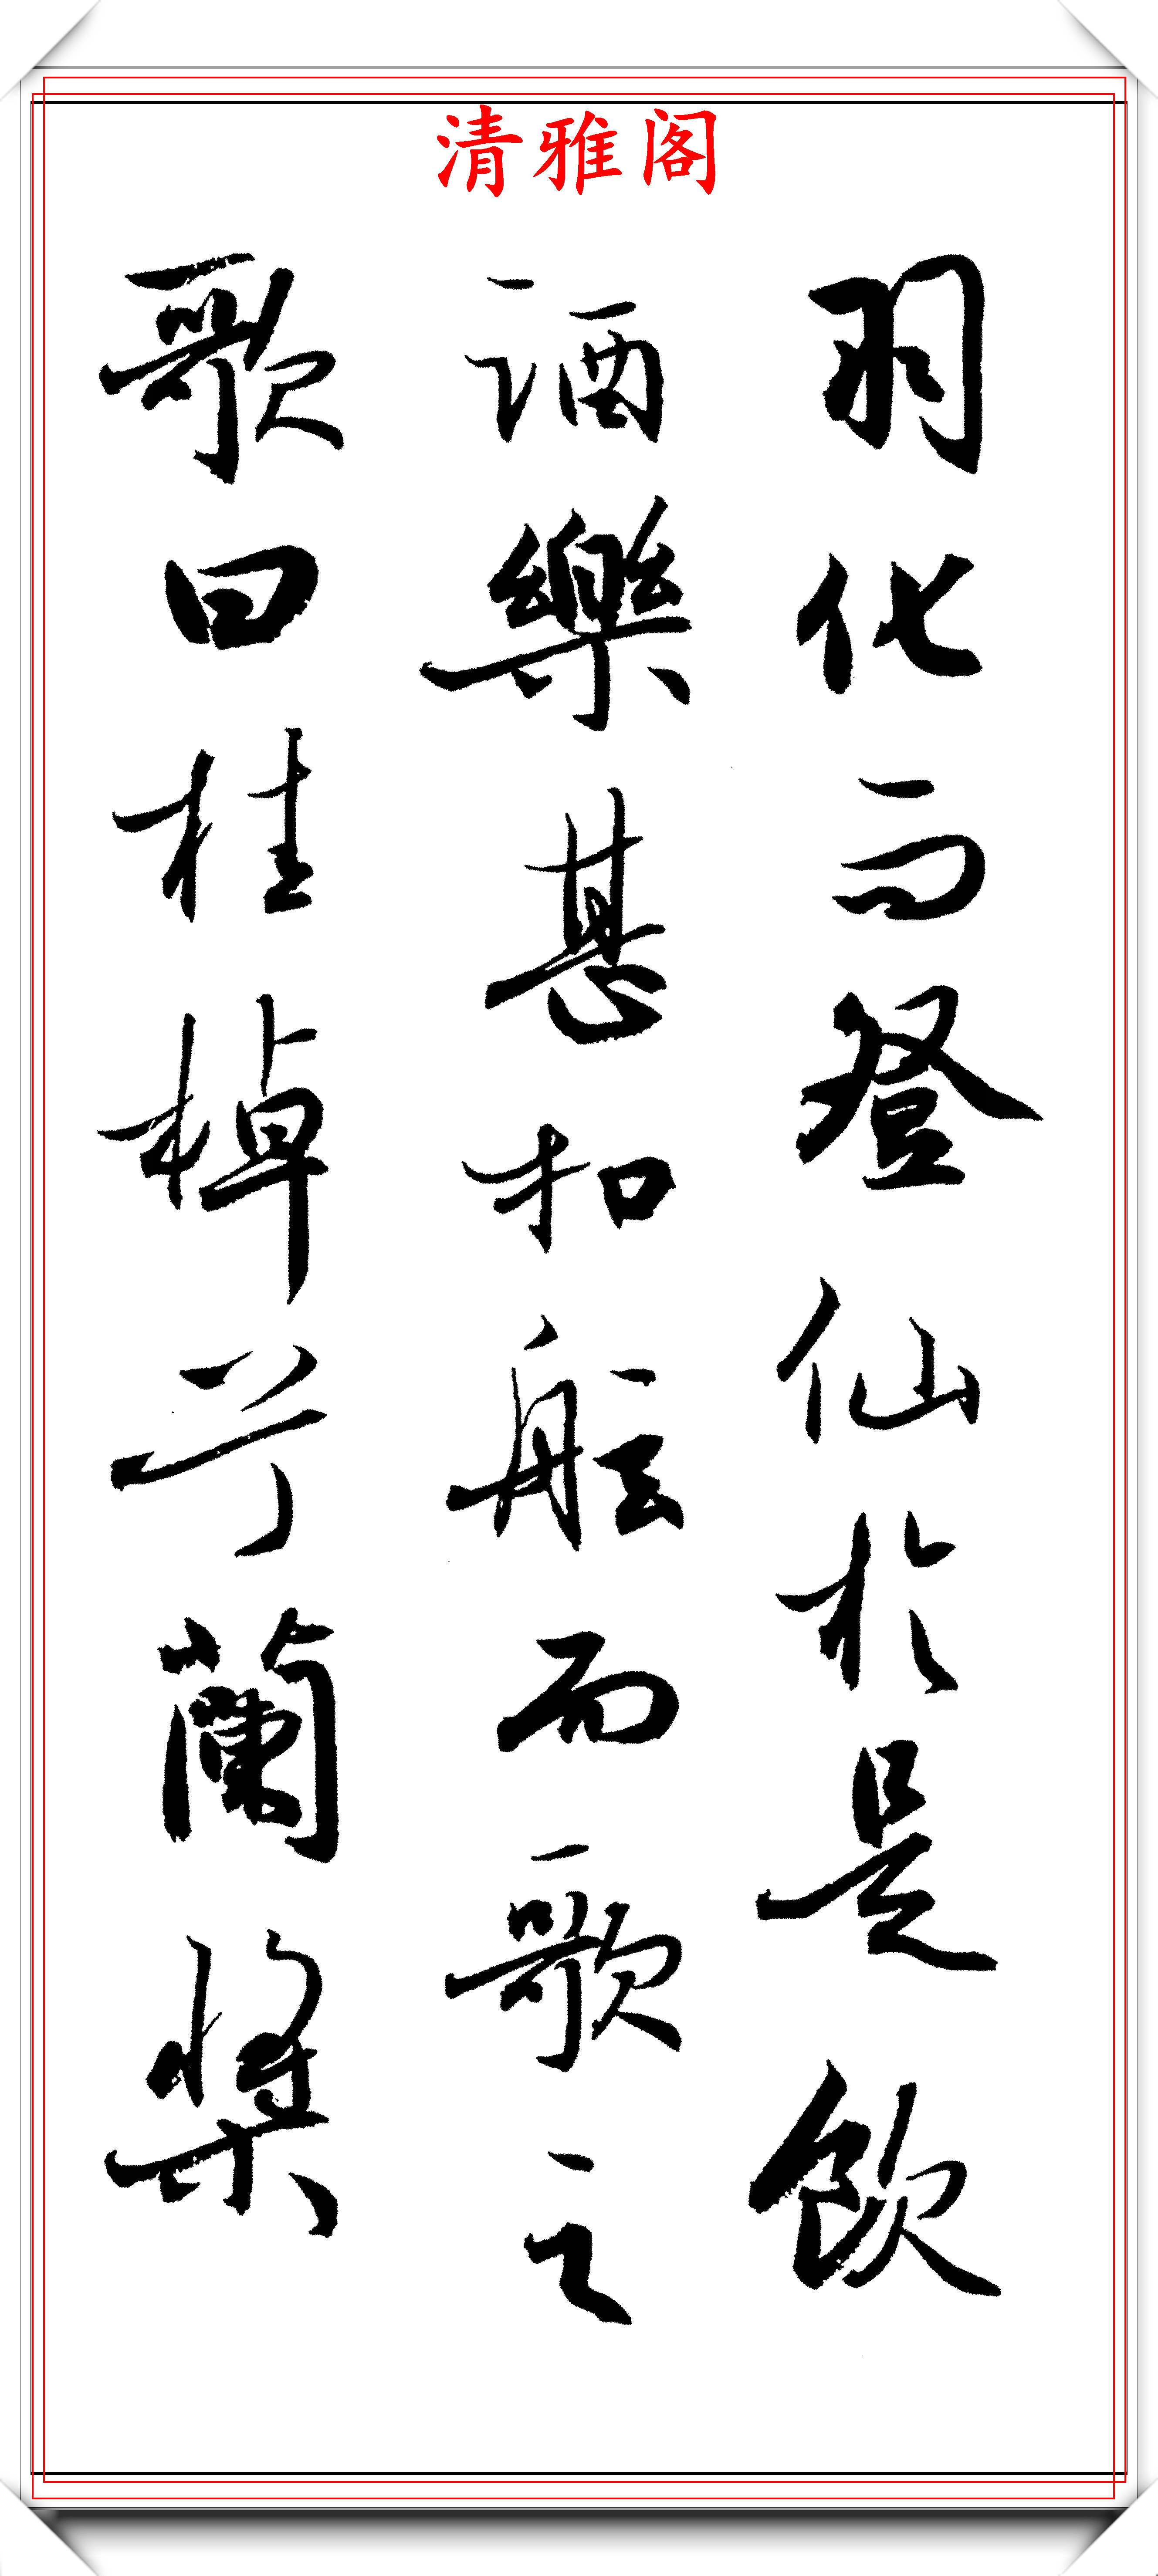 清雅阁
羽化而登仙於是飲
酒樂甚扣舷而歌之
歌曰桂棹兮蘭槳